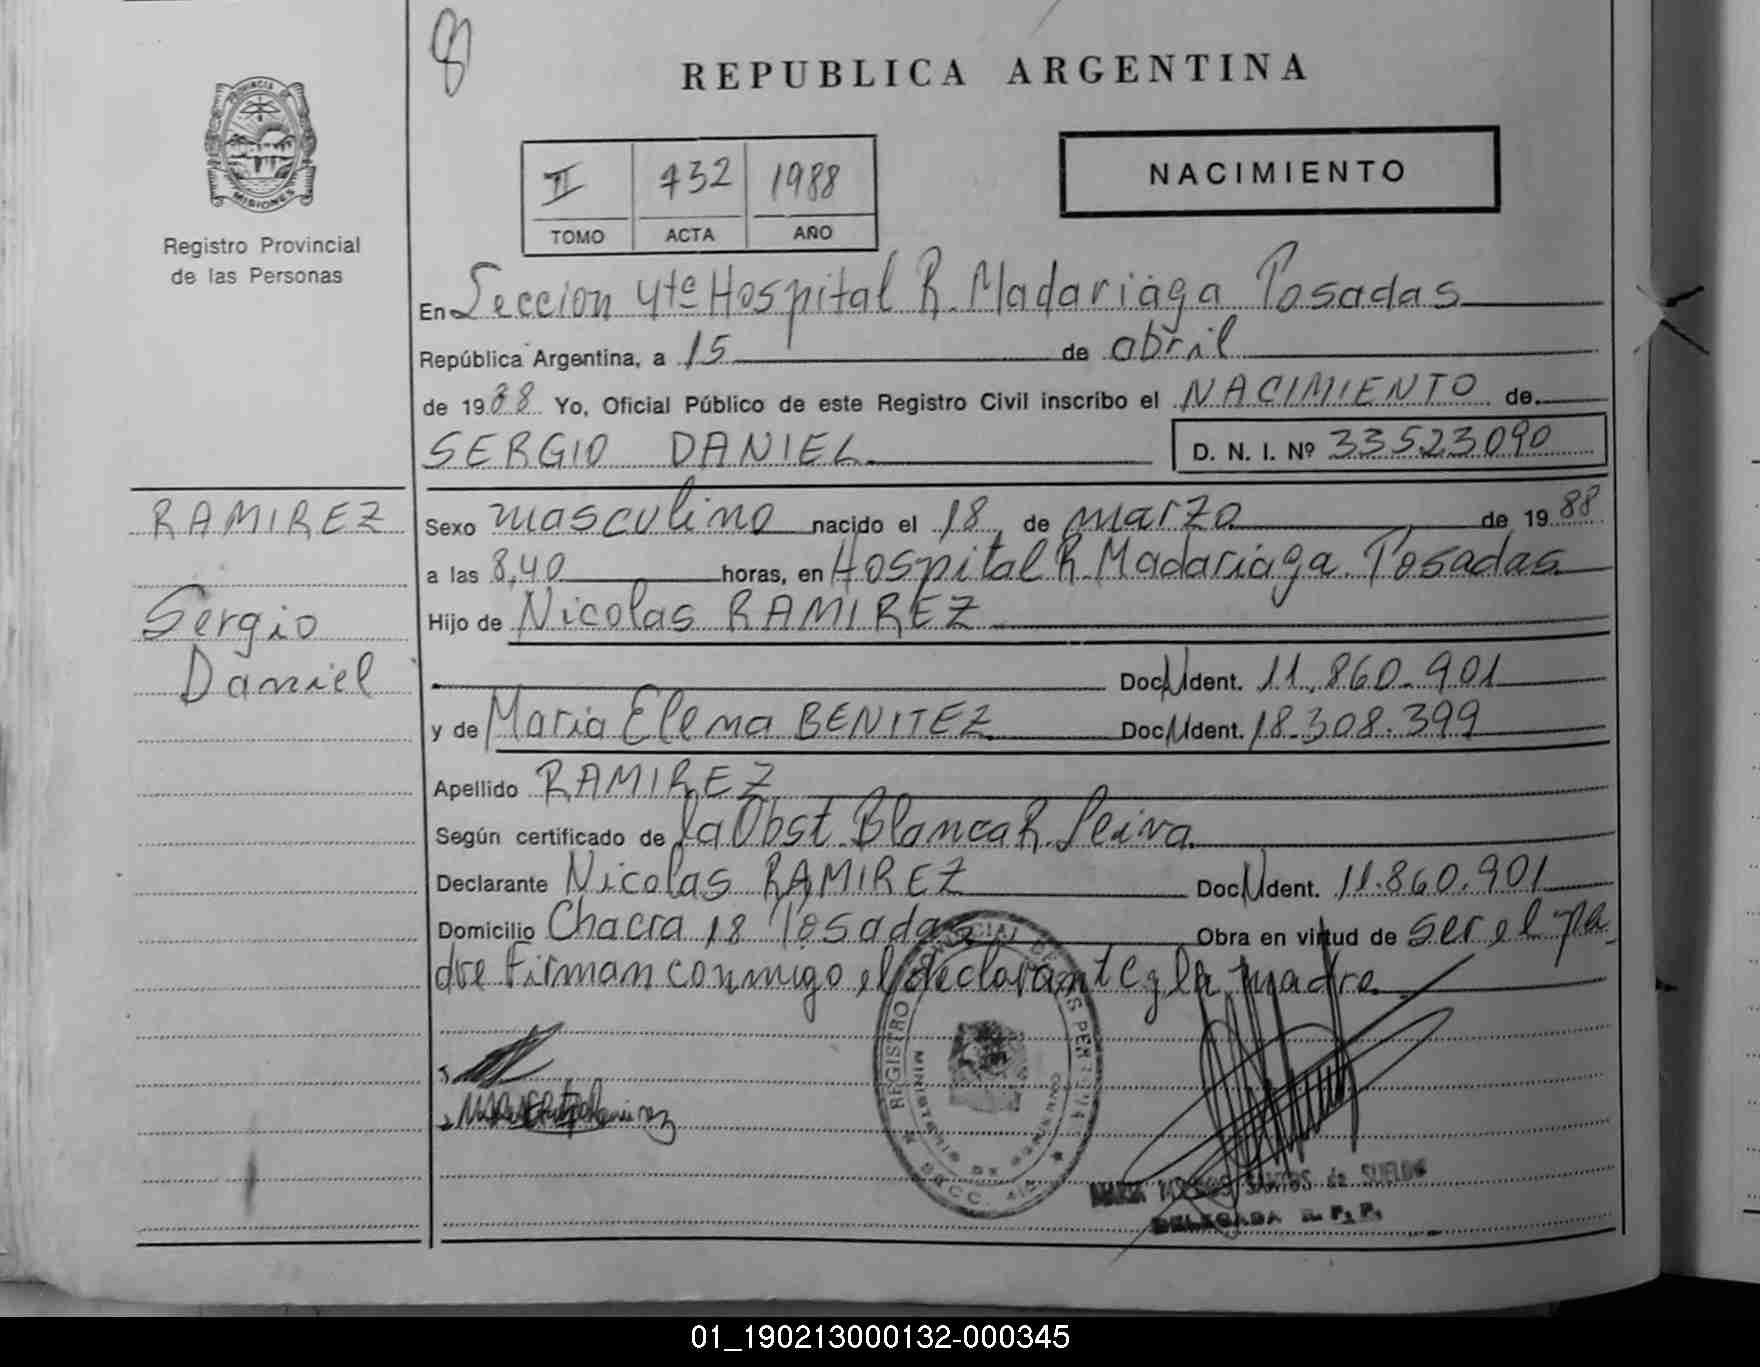 8
REPUBLICA ARGENTINA
PROVINCIA DE
MISIONES
Registro Provincial
de las Personas
II 432 1988
TOMO ACTA AÑO
NACIMIENTO
En Seccion 4ta Hospital R. Madariaga Posadas
República Argentina, a 15 de abril
de 1988 Yo, Oficial Público de este Registro Civil inscribo el NACIMIENTO de
SERGIO DANIEL D. N. I. Nº 33523090
RAMIREZ
Sergio
Daniel
Sexo masculino nacido el 18 de marzo de 1988
a las 8,40 horas, en Hospital R. Madariaga Posadas
Hijo de Nicolas RAMIREZ
Doc N Ident. 11.860.901
y de Maria Elena BENITEZ Doc N Ident. 18.308.399
Apellido RAMIREZ
Según certificado de la Obst Blanca R. Leiva
Declarante Nicolas RAMIREZ Doc N Ident. 11.860.901
Domicilio Chacra 18 Posadas Obra en virtud de ser el pa
dre Firman conmigo el declarante y la madre
REGISTRO PROVINCIAL DE LAS PERSONAS
MINISTERIO DE GOBIERNO
MARIA SANTOS de SUELDO
DELEGADA R. P. P.
01_190213000132-000345